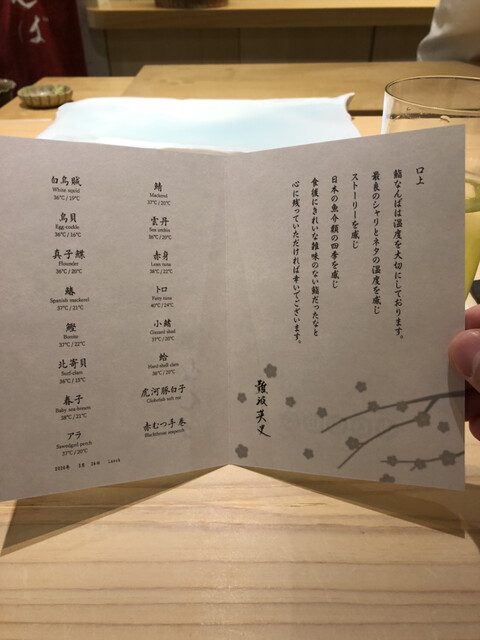 白烏賊
White squid
36℃ / 15℃
烏貝
Egg cockle
36℃ / 16℃
真子鰈
Flounder
38℃ / 20℃
鰆
Spanish mackerel
37℃ / 21℃
鰹
Bonito
37℃ / 22℃
北寄貝
Surf clam
36℃ / 15℃
春子
Baby sea bream
38℃ / 21℃
アラ
Sawedged perch
37℃ / 20℃
鯖
Mackerel
37℃ / 21℃
雲丹
Sea urchin
36℃ / 20℃
赤身
Lean tuna
38℃ / 22℃
トロ
Fatty tuna
40℃ / 24℃
小鰭
Gizzard shad
37℃ / 20℃
蛤
Hard-shell clam
36℃ / 25℃
虎河豚白子
Globefish soft roe
赤むつ手巻
Blackthroat seaperch
口上
鮨なんばは温度を大切にしております。
最良のシャリとネタの温度を感じ
ストーリーを感じ
日本の魚介類の四季を感じ
食後にきれいな雑味のない鮨だったなと
心に残っていただければ幸いでございます。
難波英史